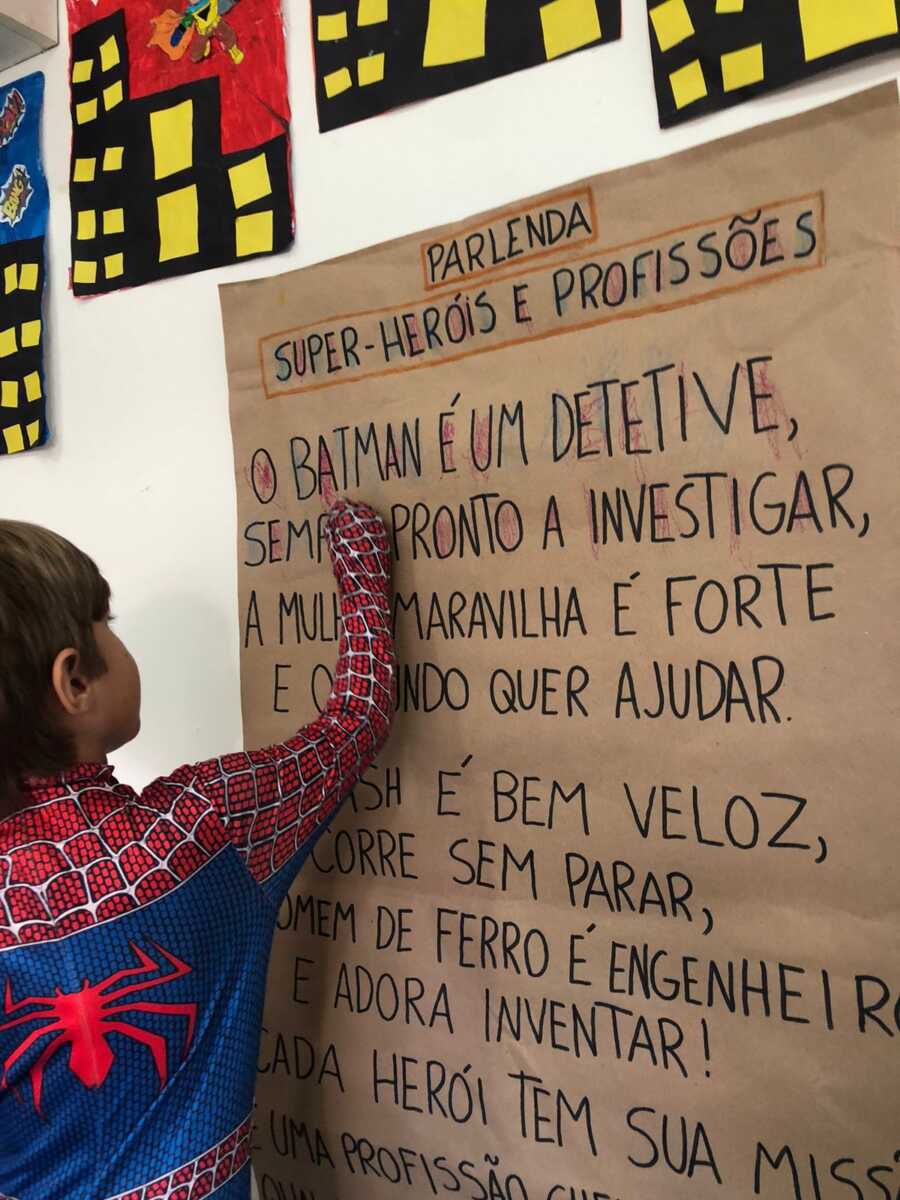 BANG!
PARLENDA
SUPER-HERÓIS E PROFISSÕES
O BATMAN É UM DETETIVE,
PRONTO A INVESTIGAR,
A MARAVILHA É FORTE
E QUER AJUDAR.
É BEM VELOZ,
CORRE SEM PARAR,
DE FERRO É ENGENHEIRO
E ADORA INVENTAR!
CADA HERÓI TEM SUA
E UMA PROFISSÃO